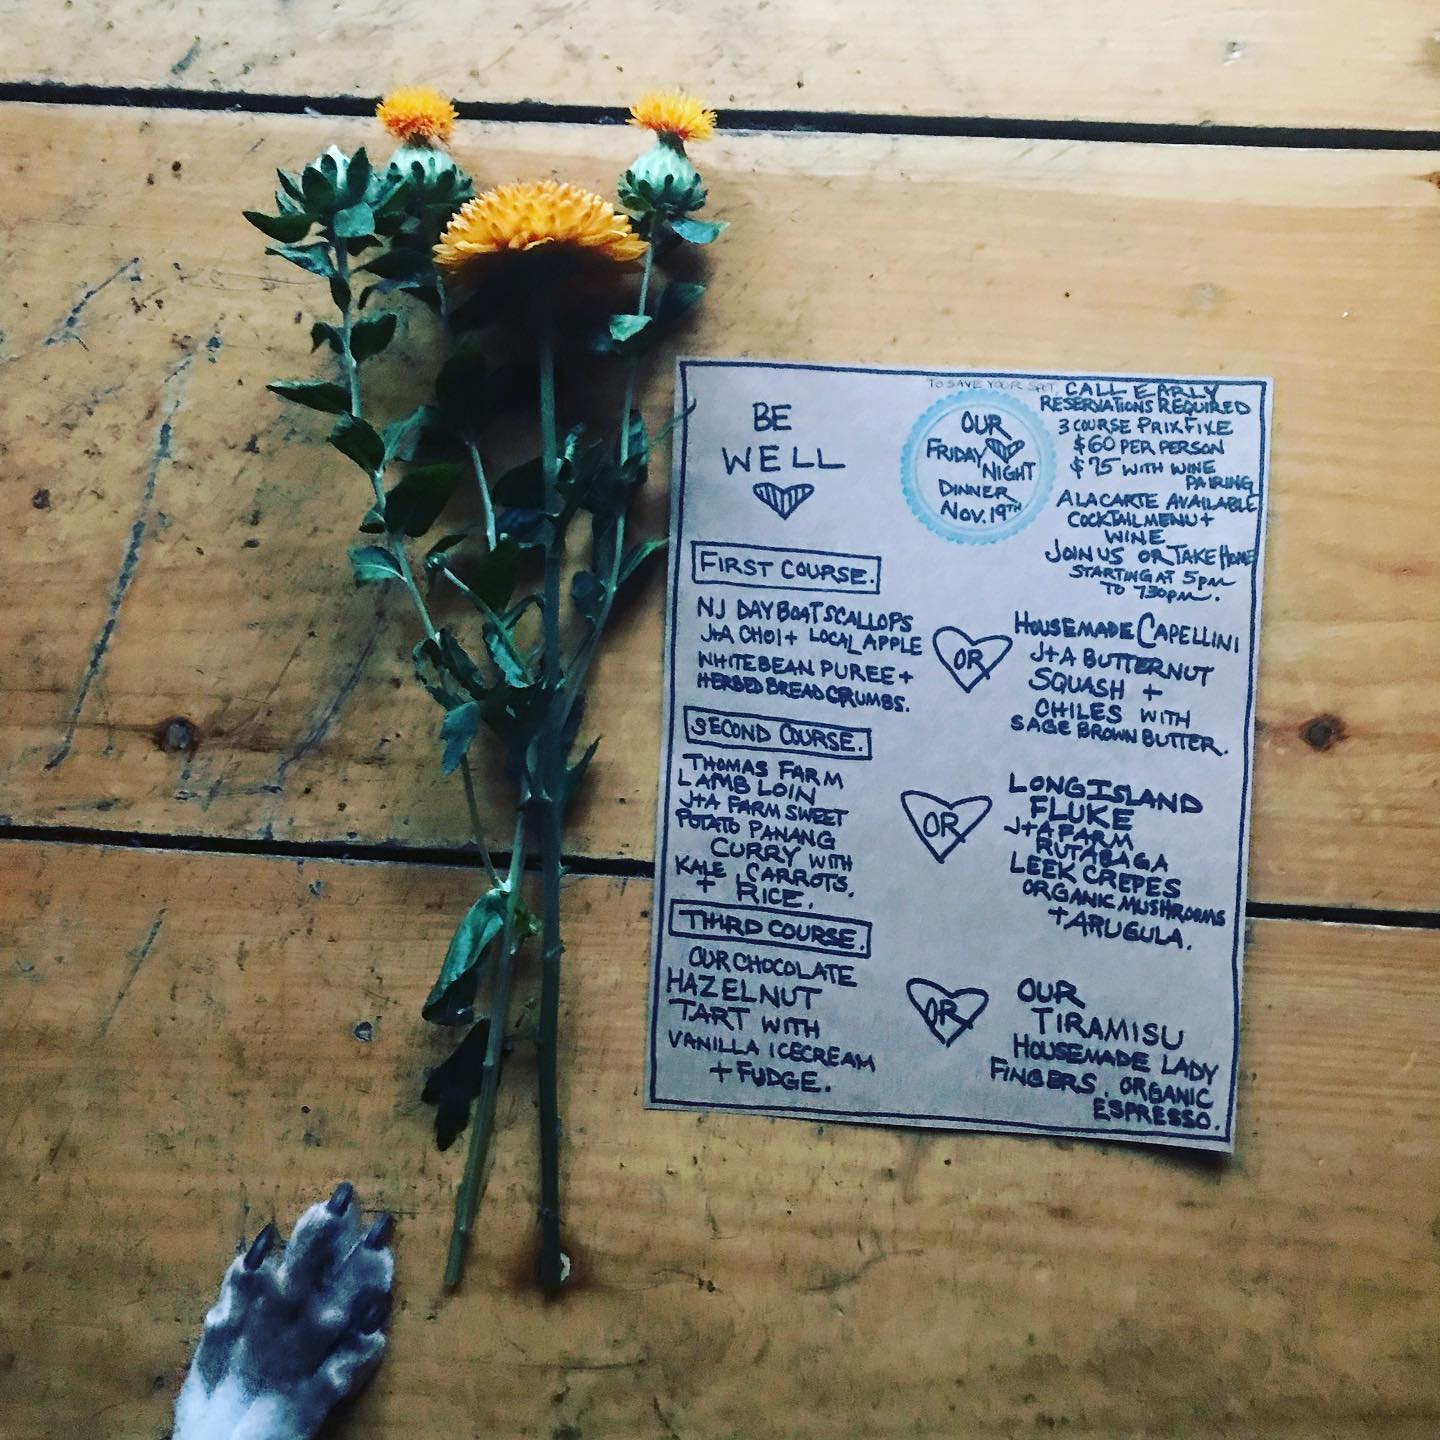 BE
WELL
OUR
FRIDAY
NIGHT
DINNER
NOV. 19TH
TO SAVE YOUR SPOT, CALL EARLY
RESERVATIONS REQUIRED
3 COURSE PRIX FIXE
$60 PER PERSON
$75 WITH WINE
PAIRING
A LA CARTE AVAILABLE
COCKTAIL MENU +
WINE
JOIN US OR TAKE HOME
STARTING AT 5pm
TO 730pm.
FIRST COURSE.
NJ DAY BOAT SCALLOPS
J+A CHOI + LOCAL APPLE
WHITE BEAN PUREE +
HERBED BREADCRUMBS.
OR
HOUSEMADE CAPELLINI
J+A BUTTERNUT
SQUASH +
CHILES WITH
SAGE BROWN BUTTER.
SECOND COURSE.
THOMAS FARM
LAMB LOIN
J+A FARM SWEET
POTATO PANANG
CURRY WITH
KALE CARROTS.
+ RICE.
OR
LONG ISLAND
FLUKE
J+A FARM
RUTABAGA
LEEK CREPES
ORGANIC MUSHROOMS
+ ARUGULA.
THIRD COURSE.
OUR CHOCOLATE
HAZELNUT
TART WITH
VANILLA ICECREAM
+ FUDGE.
OR
OUR
TIRAMISU
HOUSEMADE LADY
FINGERS, ORGANIC
ESPRESSO.